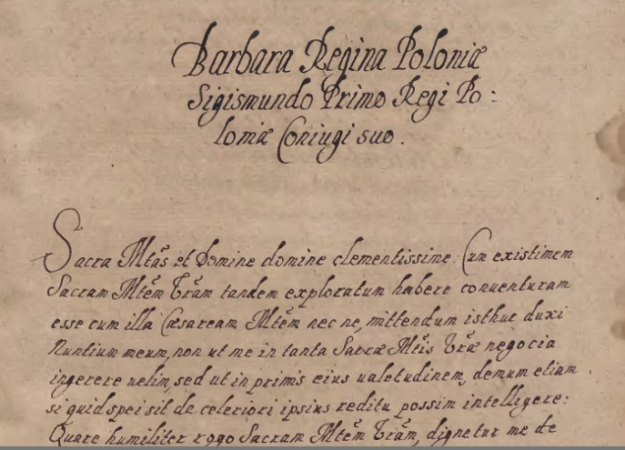 Barbara Regina Poloniæ
Sigismundo Primo Regi Po:
loniæ Coniugi suo.
Sacra Mtãs et Domine domine clementissime. Cum existimem
Sacram Mtẽm Vrãm tandem exploratum habere conventuram
esse cum illa Cæsaream Mtẽm nec ne, mittendum isthuc duxi
Nuntium meum, non ut me in tanta Sacræ Mtĩs Vræ̃ negocia
ingerere uelim, sed ut in primis eius ualetudinem, demum etiam
si quid spei sit de celeriori ipsius reditu possim intelligere:
Quare humiliter rogo Sacram Mtẽm Vrãm, dignetur me de